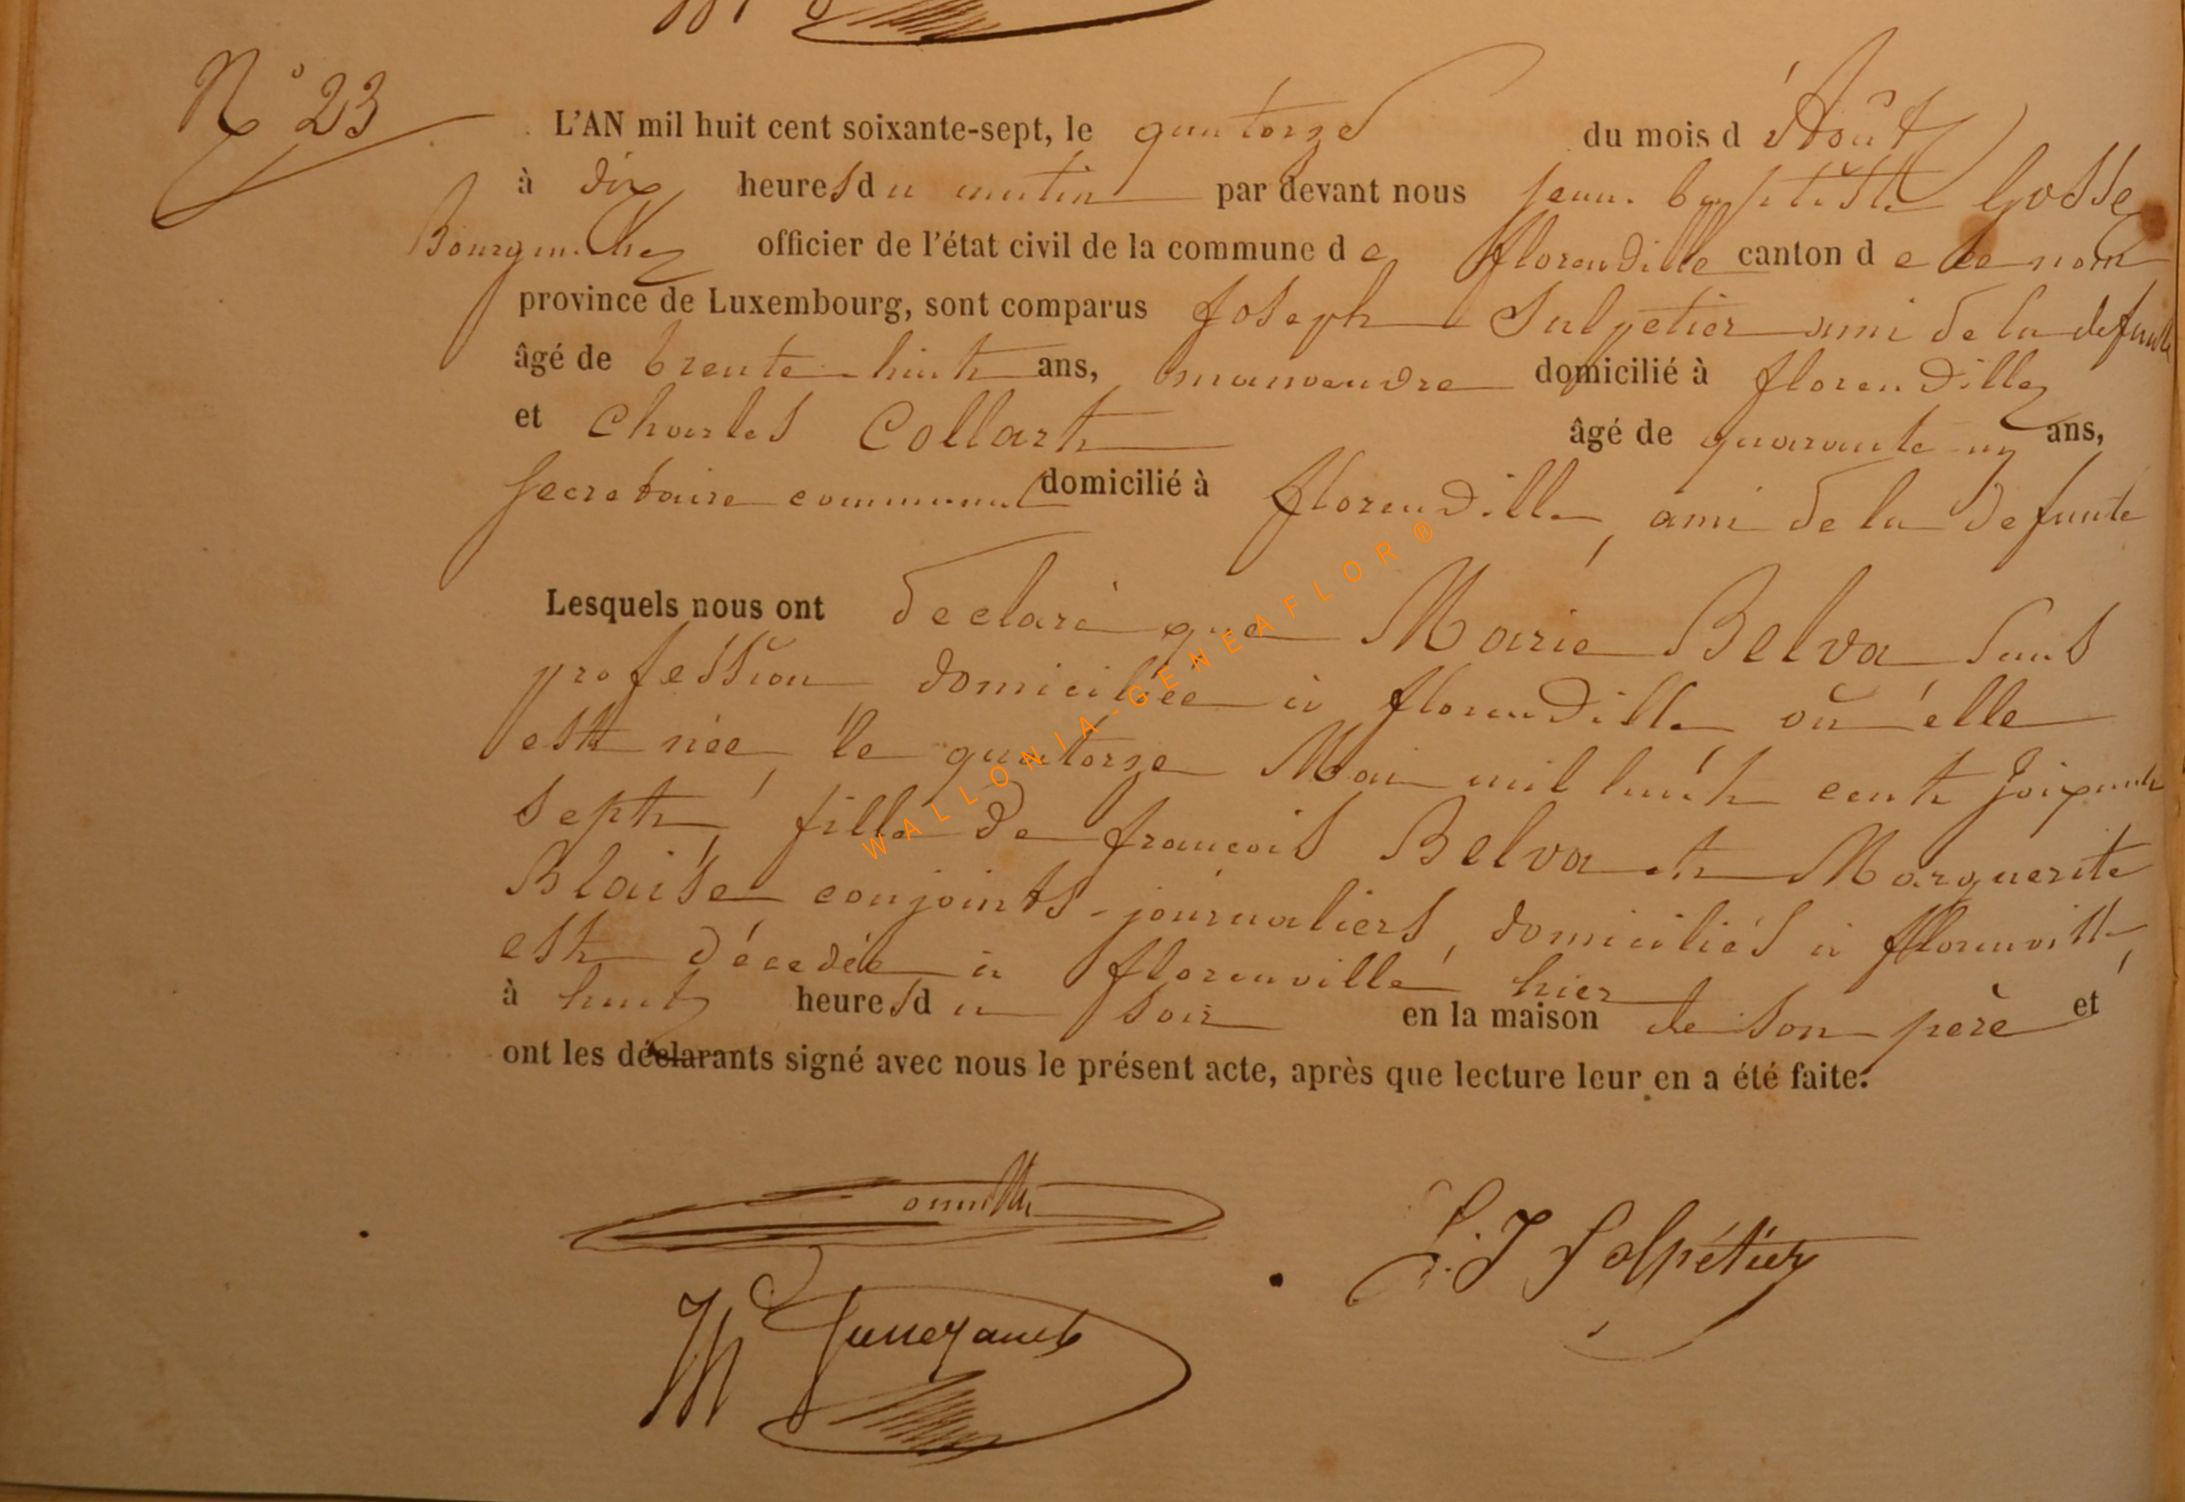 N° 23
L'AN mil huit cent soixante-sept, le quatorze du mois d'Août
à dix heures du matin par devant nous jean. baptiste Gosse
Bourgmestre officier de l'état civil de la commune de florenville canton de ce nom
province de Luxembourg, sont comparus Joseph Salpetier ami de la defunte
âgé de trente-huit ans, manoeuvre domicilié à florenville
et Charles Collart âgé de quarante-un ans,
secretaire communal domicilié à florenville, ami de la defunte
Lesquels nous ont declaré que Marie Belva sans
profession domiciliée à florenville où elle
est née, le quatorze Mai mil huit cent soixante
sept, fille de françois Belva et Marguerite
Blaise conjoints-journaliers, domiciliés à florenville,
est décedée à florenville hier
à huit heures du soir en la maison de son père et
ont les déclarants signé avec nous le présent acte, après que lecture leur en a été faite.
J. Salpétier
WALLONIA-GENEAFLOR®